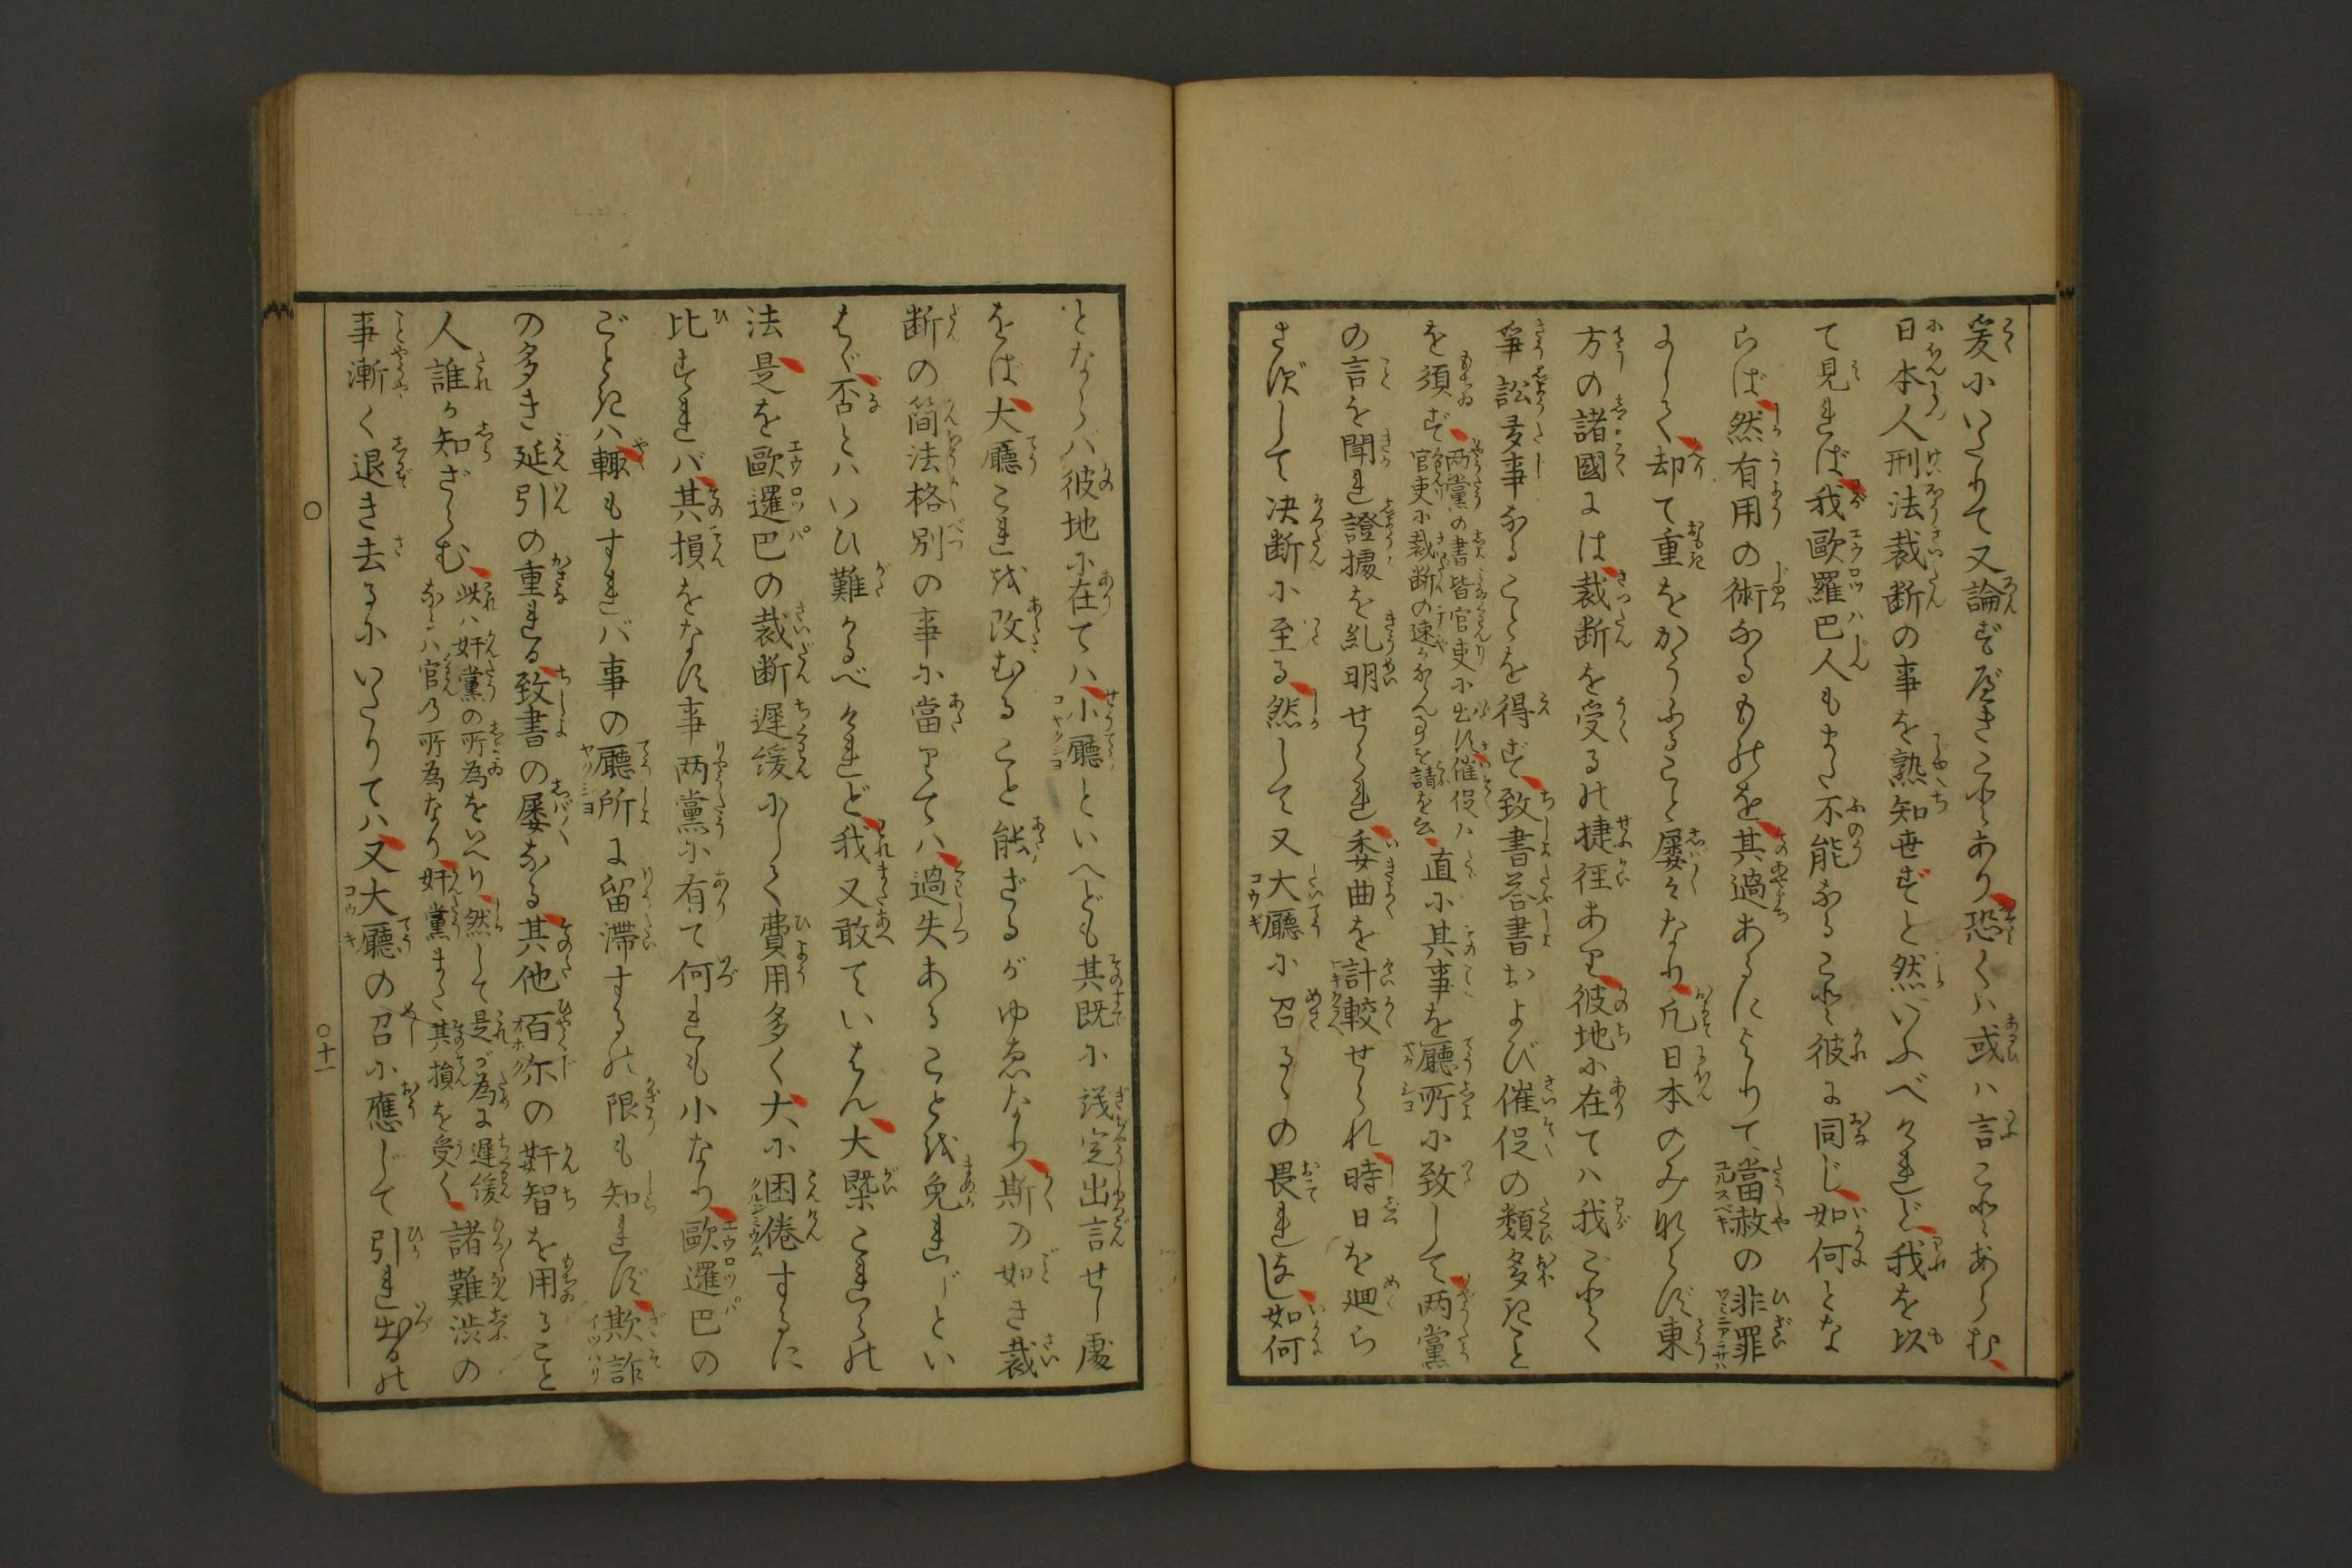 爰にいたりて又論ず可きことあり恐くハ或ハ言ことあらむ
日本人刑法裁断の事を熟知せずと然いふべけれど我を以
て見れば我歐羅巴人もまた不能なること彼に同じ如何とな
らば然有用の術なるものを其過あるによりて當赦の非罪
よりも却て重をかうふること屡々なり凡日本のみならず東
方の諸國には裁断を受るの捷徑あり彼地に在てハ我ごとく
爭訟多事なることを得ず致書荅書および催促の類多きこと
を須ず両黨の書皆官吏に出し催促ハ
官吏に裁断の速ならん事を請を云直に其事を廳所に致して両黨
の言を聞れ證據を糺明せられ委曲を計較せられ時日を廻ら
さずして决断に至る然して又大廳に召るゝの畏れなし如何
とならバ彼地に在てハ小廳といへども其既に議定出言せし處
をば大廳これを改むること能ざるがゆゑなり斯の如き裁
断の簡法格別の事に當りてハ過失あること免れじとい
はゞ否とハいひ難かるべけれど我又敢ていはん大槩これらの
法是を歐邏巴の裁断遅緩にして費用多く大に困倦するに
比すれバ其損をなす事両黨に有て何れも小なり歐邏巴の
ごときハ輙もすれバ事の廳所に留滯するの限も知れず欺詐
の多き延引の重れる致書の屡なる其他百尓の奸智を用ること
人誰か知ざらむ此ハ奸黨の所為をいへり然して是が為に遅緩
なるハ官の所為なり奸黨また其損を受く諸難渋の
事漸く退き去るにいたりてハ又大廳の召に應じて引れ出るの
十一